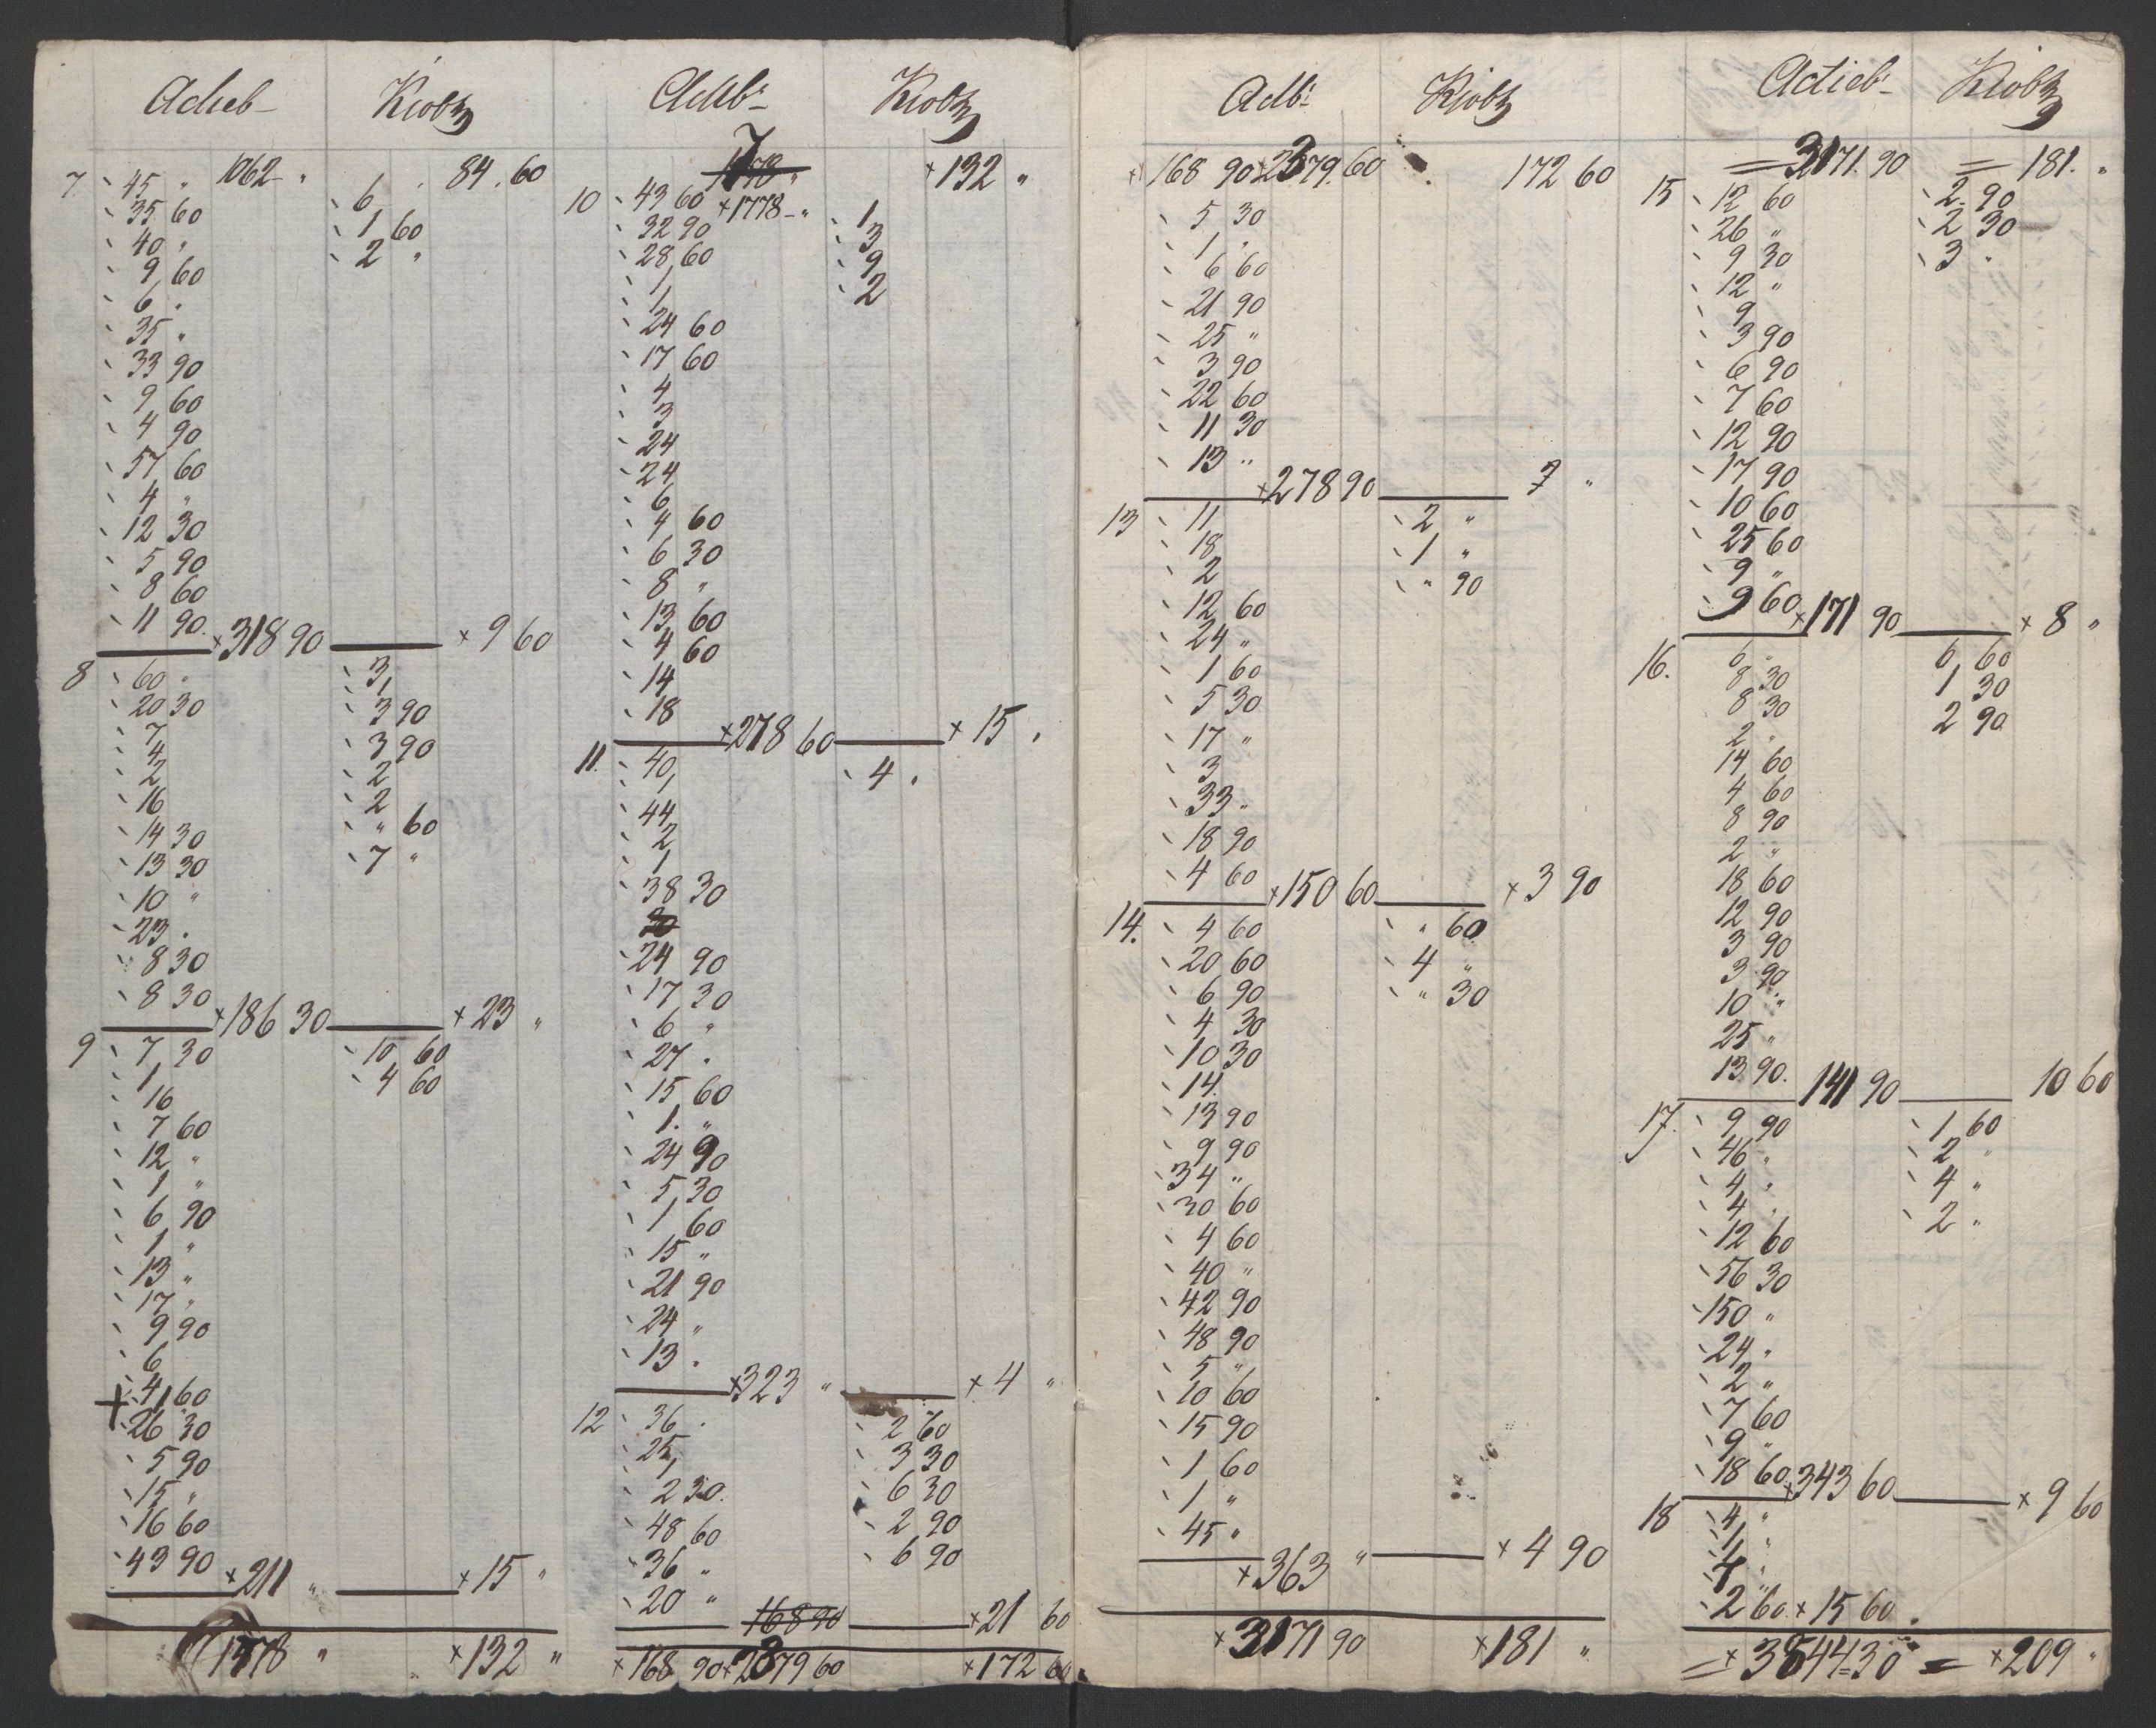 Actieb- Kiobtz
7 45 " 1062 - " 6 . 84. 60
35 60 1 60
40 " 2 "
9 60
6 .
35 "
33 90
9 60
4 90
57 60
4 "
12 30
5 90
8 60
11 90 × 318 90 × 9 60
8 60 . 3,
20 30 3 90
7 3 90
4 2
2 2
16 " 60
14 30 7 "
13 30
10 "
23 .
8 30
8 30 × 186 30 × 23 "
9 7 30 10 60
1 4 60
16
7 60
12 "
1 "
6 90
1 "
13 "
17 "
9 90
6
+ 4 60
26 30
5 90
15 "
16 60
43 90 × 211 " × 15 "
1778 " × 132 "
Actieb- Kiobtz
1778 " × 132 "
10 43 60 × 1778 - " 1
32 90 3
28 60 9
1 2
1
24 60
17 60
4
3
24
24
6
4 60
6 30
8 "
13 60
4 60
14
18 × 278 60 × 15 .
11. 40, 4 .
44
2
1
38 30
30
24 90
17 30
6 "
27 .
15 60
1. "
24 90
5 30
1 60
15 "
21 90
24 "
13 . × 323 " × 4 "
12 36 . 2 60
25, 3 30
2 30. 6 30
48 60 2 90
36 " 6 90
20 " 168 90 × 21 60
× 168 90 × 2379 60 × 172 60
Actb: Kiobtz
× 168 90 × 2379. 60 172 60
5 30
1 .
6 60
21 90
25 "
3 90
22 60
11 30
13 "
× 278 90 7 "
13 11 2 "
18 1 "
2 " 90
12 60
24 "
1 60
5 30
17 "
3
33 "
18 90
4 60 × 150 60 × 3 90
14. 4 60 " 60
20 60 4 "
6 90 " 30
4 30
10 30
14.
13 90
9 90
34 "
30 60
4 60
40 "
42 90
48 90
5 "
10 60
15 90
1 60
1 "
45 "
× 363 " × 4 90
× 3171 90 × 181 "
Actieb- Kiobtz
= 3171. 90 = 181. "
15 12 60 2 90
26 " 2 30
9 30 3 "
12 "
9
3 90
6 90
7 60
12 90
17 90
10 60
25 60
9 "
9 60 × 171 90 × 8 "
16. 6 . 6 60
8 30 1 30
8 30 2 90
2 "
14 60
4 60
8 90
2 "
18 60
12 90
3 90
3 90
10 "
25 "
13 90. 141 90 10 60
17. 9 90 1 60
46 " 2 "
4 " 4 "
4 " 2 "
12 60
56 30
150 "
24 "
2 "
7 60
9 "
18 60 × 343 60 × 9 60
18 4 "
1 "
7 "
2 60 × 15 60 .
= × 3844 = 30 = × 209 "